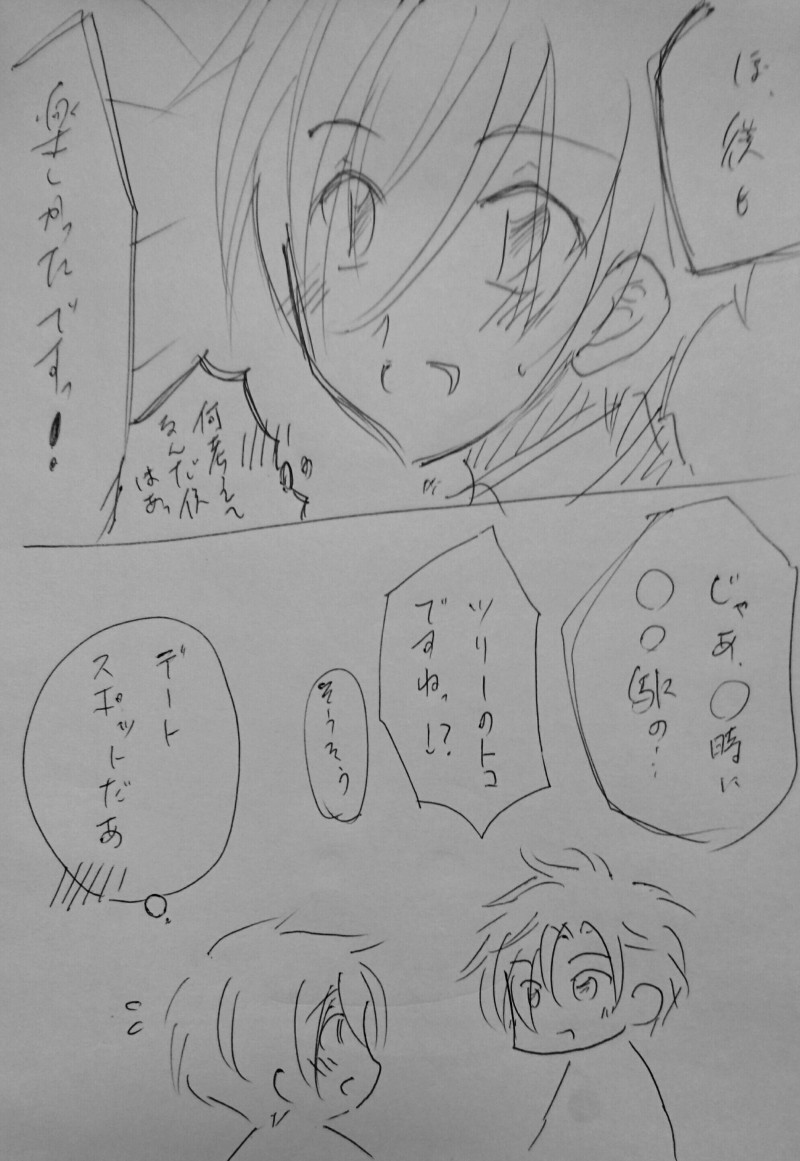 ぼ、僕も
楽しかったですっ!
何考え〜
なんだ俺
はあっ
じゃあ、〇時に
〇〇駅の…
ツリーのトコ
ですねっ!?
そうそう
デート
スポットだぁ